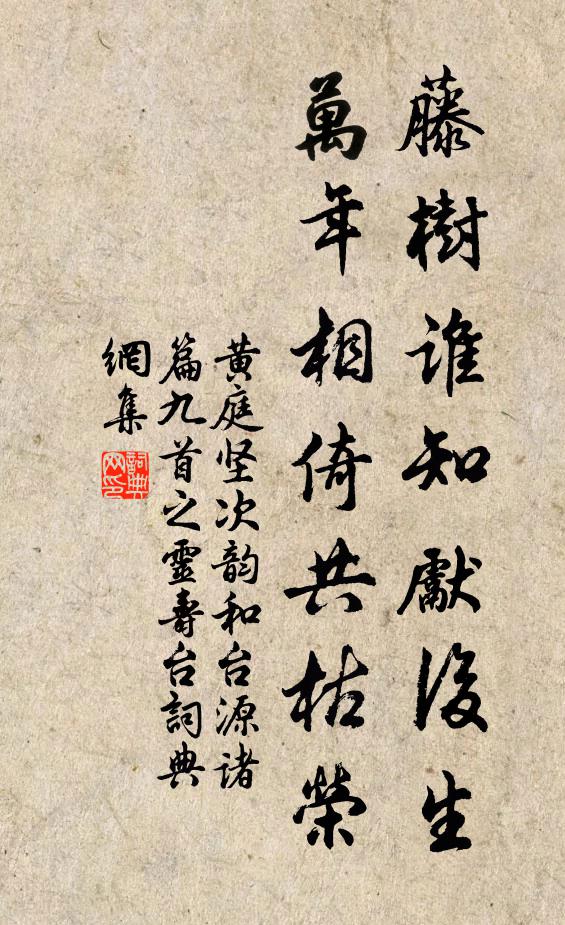 藤樹誰知獻後生
萬年相倚共枯榮
黄庭坚次韵和台源诸
篇九首之靈壽台詞典
網集
詞典
网印